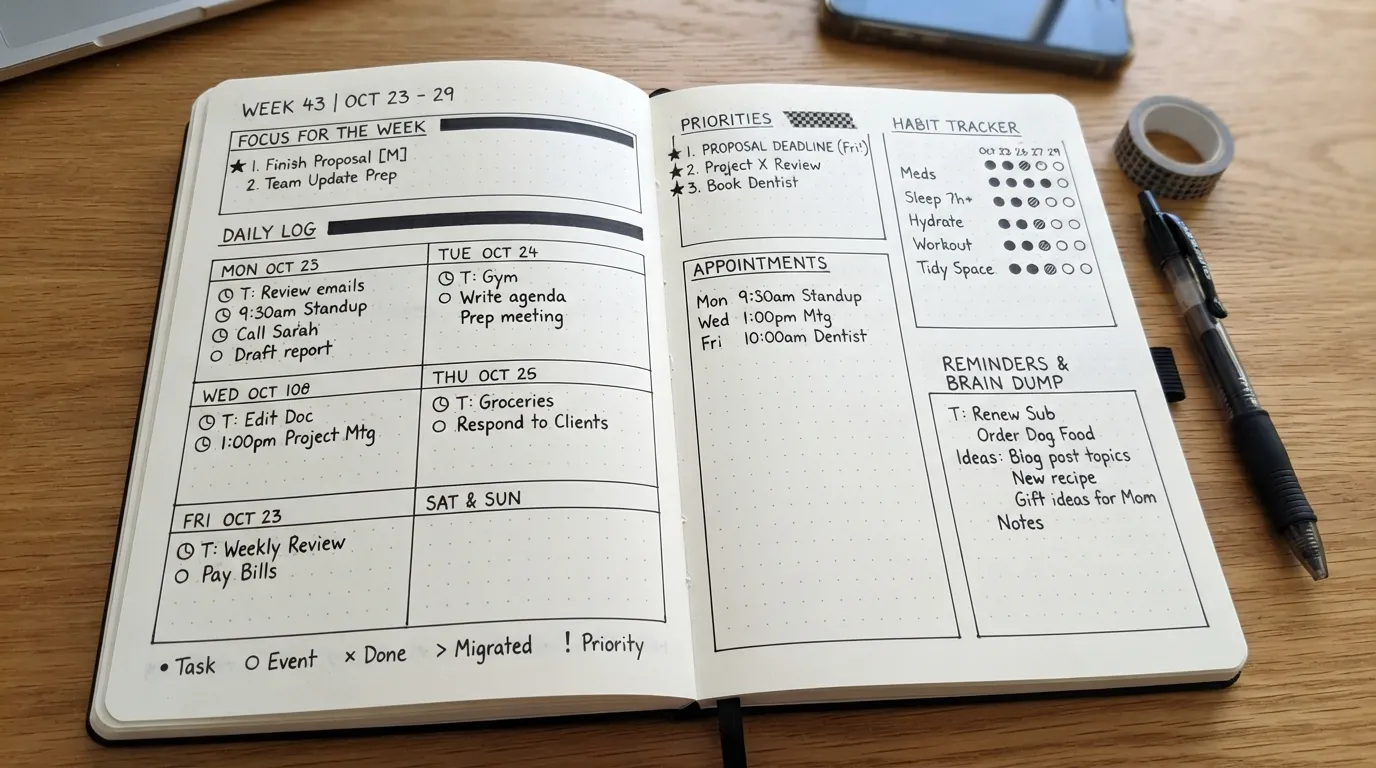 WEEK 43 | OCT 23 - 29
FOCUS FOR THE WEEK
★ 1. Finish Proposal [M]
2. Team Update Prep
DAILY LOG
MON OCT 23
T: Review emails
9:30am Standup
Call Sarah
Draft report
TUE OCT 24
T: Gym
Write agenda
Prep meeting
WED OCT 108
T: Edit Doc
1:00pm Project Mtg
THU OCT 25
T: Groceries
Respond to Clients
FRI OCT 23
T: Weekly Review
Pay Bills
SAT & SUN
• Task ○ Event × Done > Migrated ! Priority
PRIORITIES
★ 1. PROPOSAL DEADLINE (Fri!)
★ 2. Project X Review
★ 3. Book Dentist
APPOINTMENTS
Mon 9:30am Standup
Wed 1:00pm Mtg
Fri 10:00am Dentist
HABIT TRACKER
Meds
Sleep 7h+
Hydrate
Workout
Tidy Space
REMINDERS &
BRAIN DUMP
T: Renew Sub
Order Dog Food
Ideas: Blog post topics
New recipe
Gift ideas for Mom
Notes